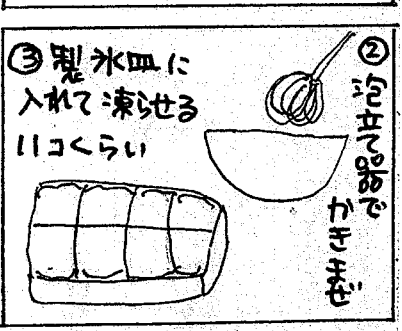 ②泡立て器で
かきまぜ
③製氷皿に
入れて凍らせる
11コくらい